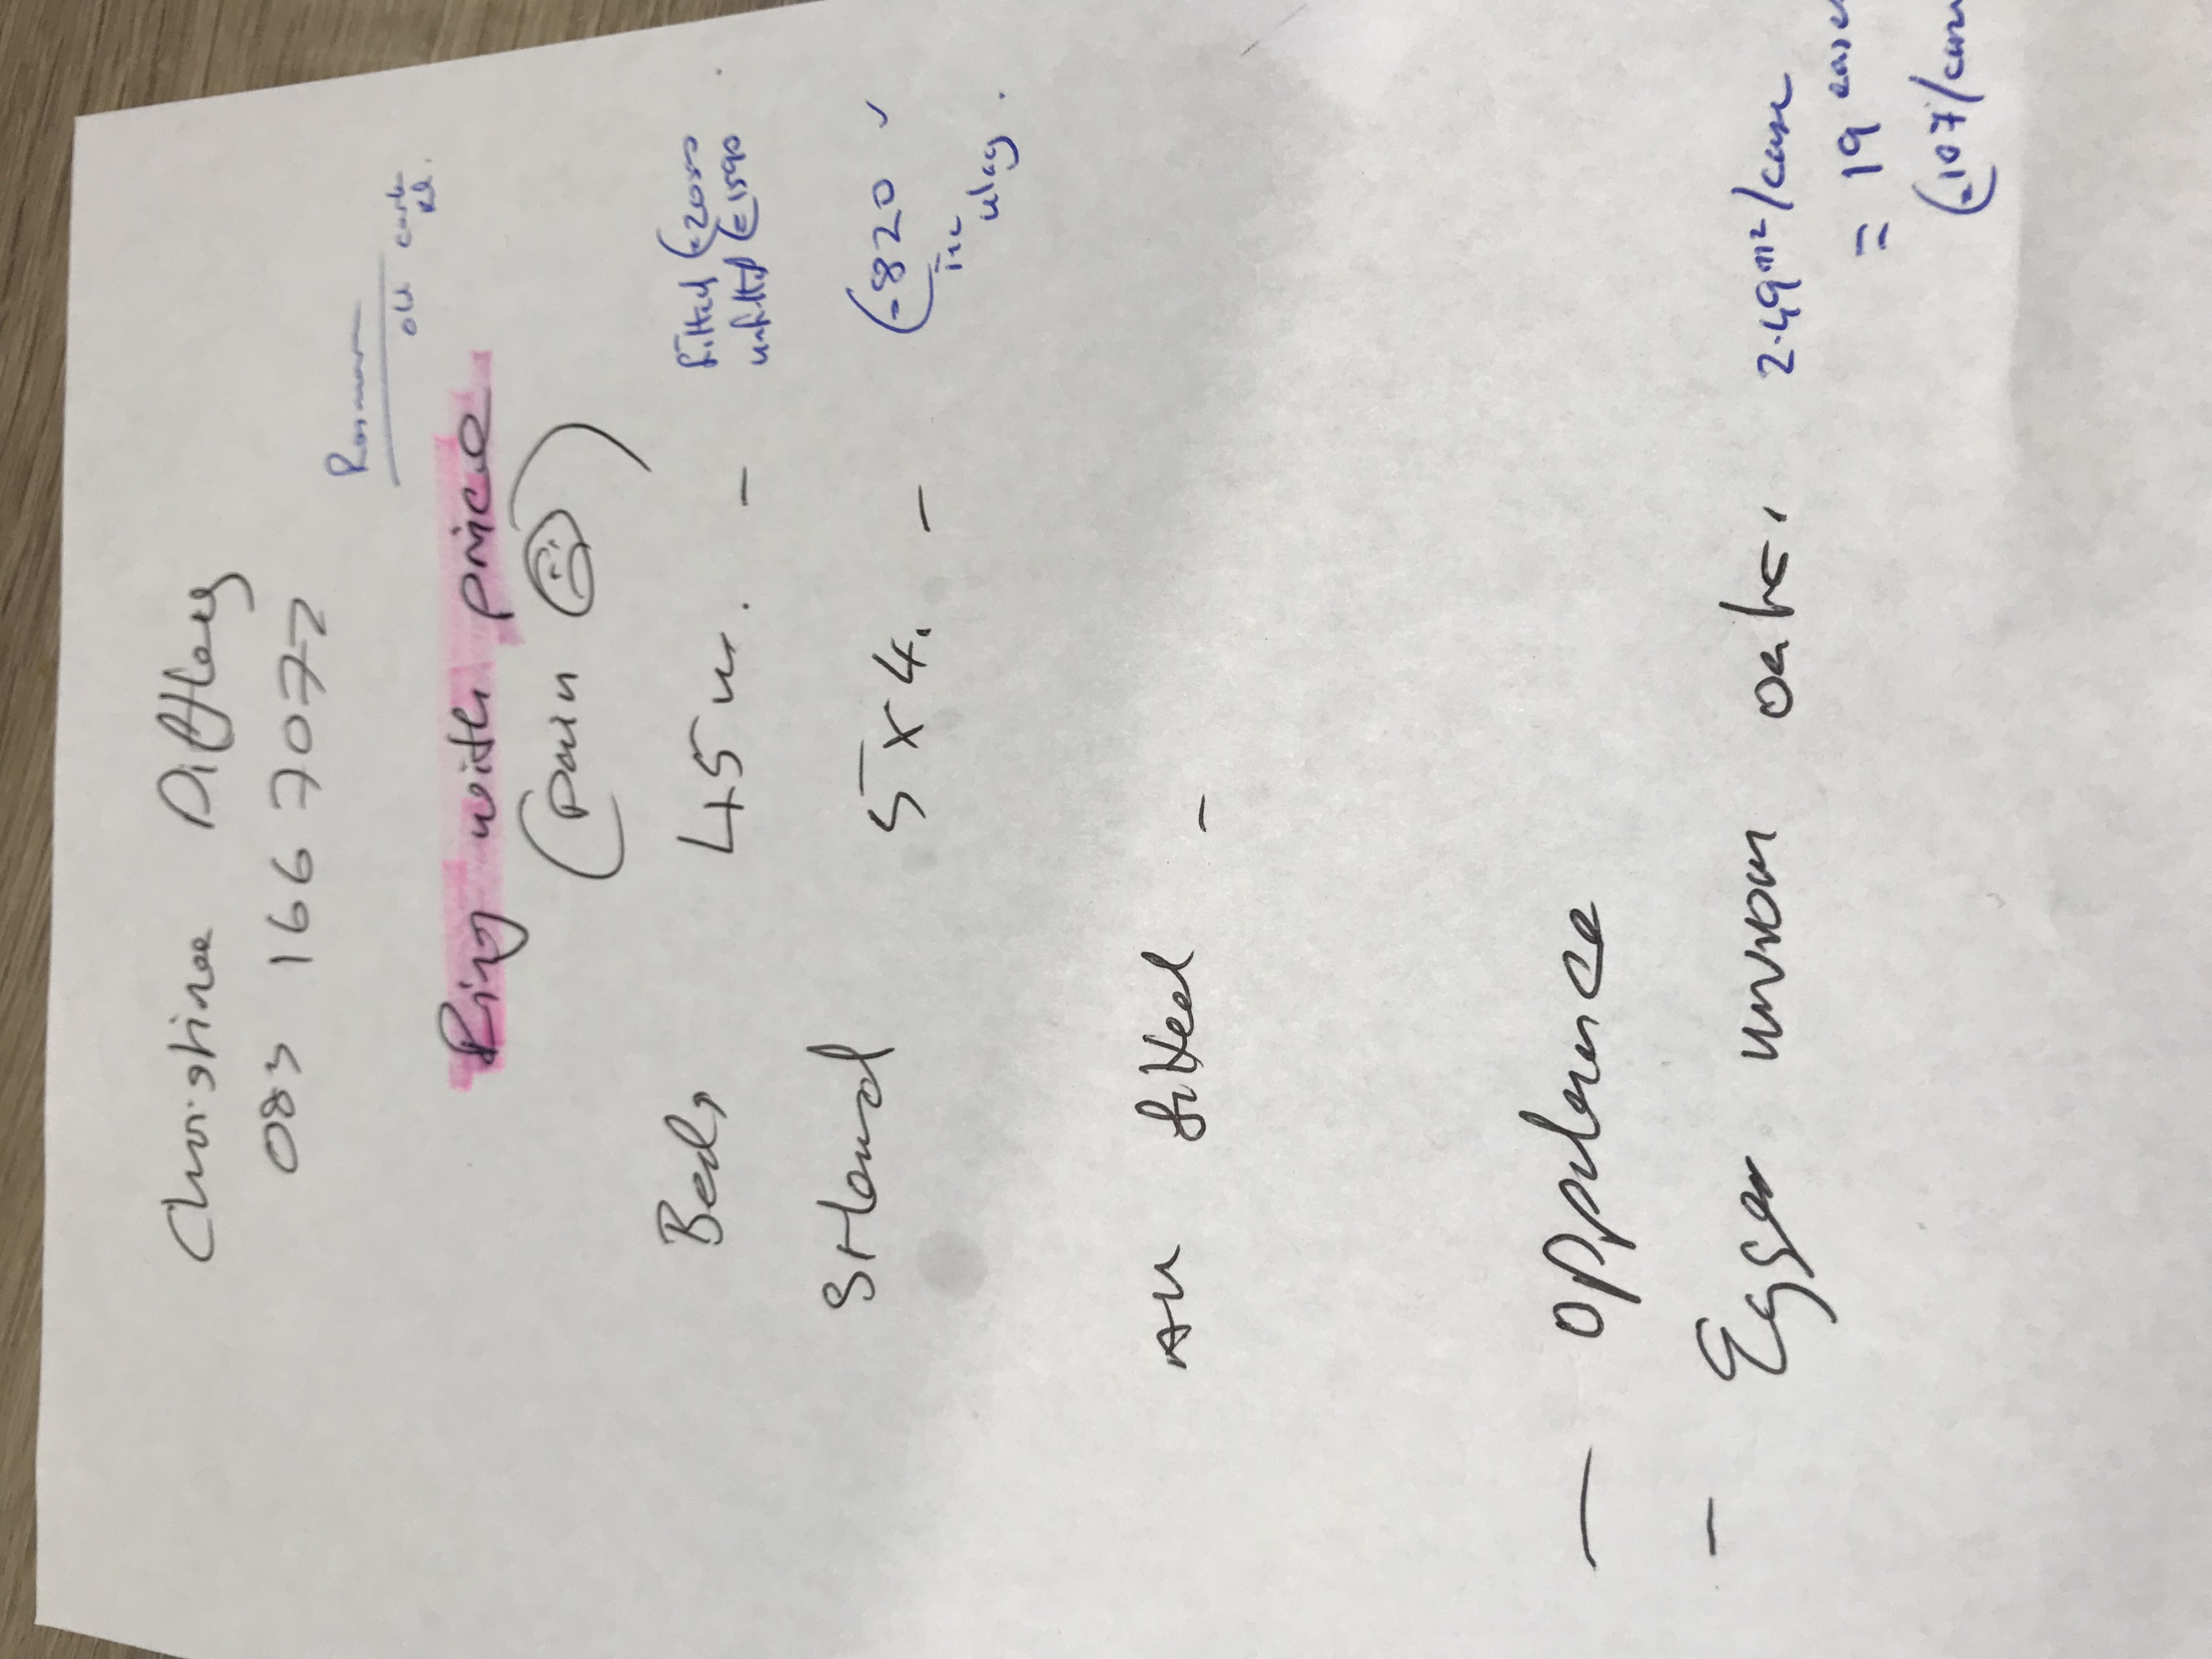 Christine Diffley
083 166 7077
old
Ring with price
(Paul ☺)
Beds 45m. - fitted €2055
unfitted €1590
S+Land 5x4. - €820 ✓
inc
ulay.
All fitted -
- Oppulence
- Egger unron oak. 2.49m²/case
= 19 cases
€107/